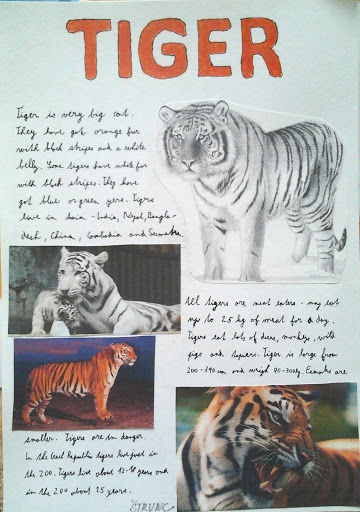 TIGER
Tiger is very big cat.
They have got orange fur
with black stripes and a white
belly. Some tigers have white fur
with black stripes. They have
got blue or green eyes. Tigers
live in Asia - India, Nepal, Bangla-
desh, China, Cambodia and Sumatra.
All tigers are meat eaters - may eat
up to 25 kg of meat for a day.
Tigers eat lots of deers, monkeys, wild
pigs and tapirs. Tiger is large from
200-390 cm and weigh 90-300kg. Females are
smaller. Tigers are in danger.
In the Czech Republic tigers live just in
the ZOO. Tigers live about 12-18 years and
in the ZOO about 25 years.